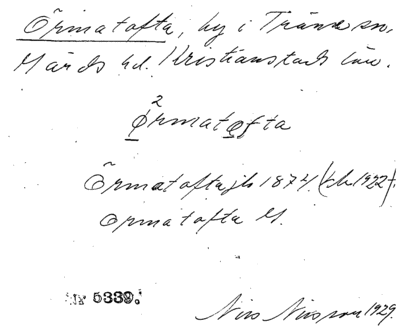 Örmatofta, by i Tranås sn.
Järds hd. Kristianstads län.
2
ørmatǫfta
Örmatofta jb 1874 (kb 1922+
Ormatofta M.
Nr 5339.
Nils Nilsson 1929.